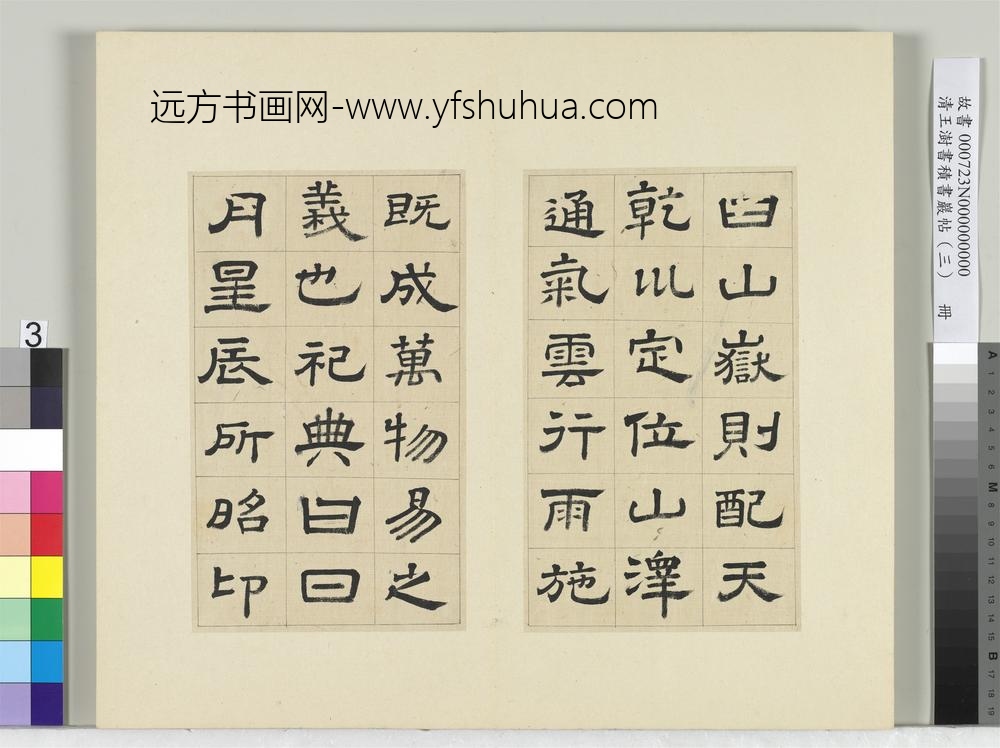 远方书画网-www.yfshuhua.com
曰山嶽則配天
乾巛定位山澤
通氣雲行雨施
既成萬物易之
義也祀典曰日
月星辰所昭卬
故書 000723N000000000
清王澍書積書巖帖（三） 冊
3
A 1 2 3 4 5 6 M 8 9 10 11 12 13 14 15 B 17 18 19